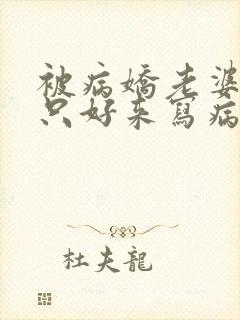 被病嬌老婆
只好來寫病
杜夫龍